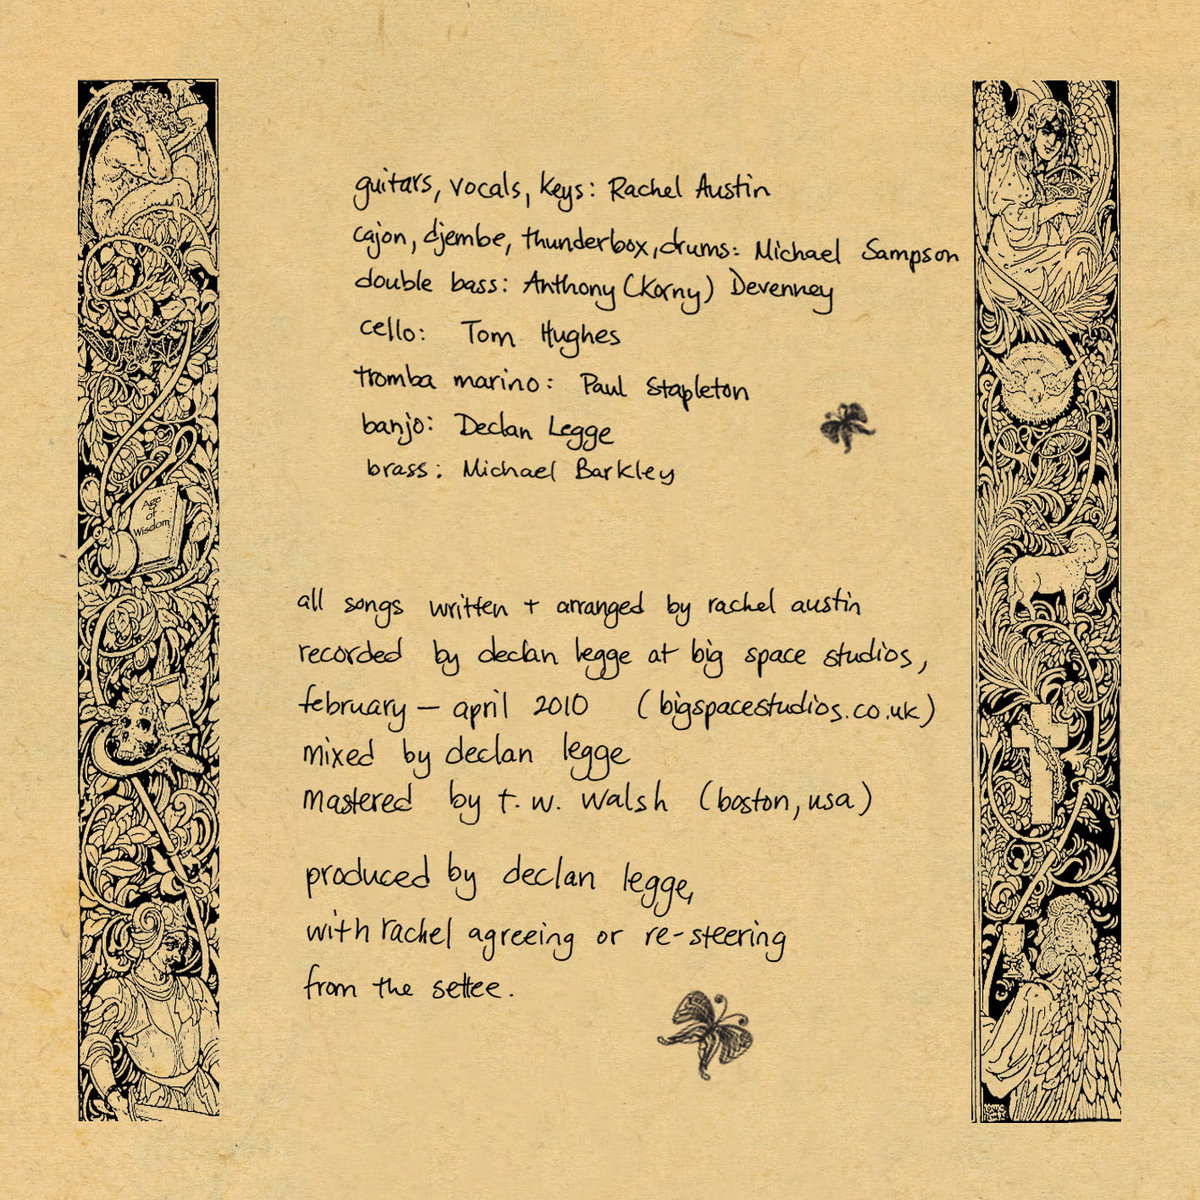 guitars, vocals, keys: Rachel Austin
cajon, djembe, thunderbox, drums: Michael Sampson
double bass: Anthony (Korny) Devenney
cello: Tom Hughes
tromba marino: Paul Stapleton
banjo: Declan Legge
brass: Michael Barkley
Age
of
Wisdom
all songs written + arranged by rachel austin
recorded by declan legge at big space studios,
february – april 2010 (bigspacestudios.co.uk)
mixed by declan legge
mastered by t. w. walsh (boston, usa)
produced by declan legge,
with rachel agreeing or re-steering
from the settee.